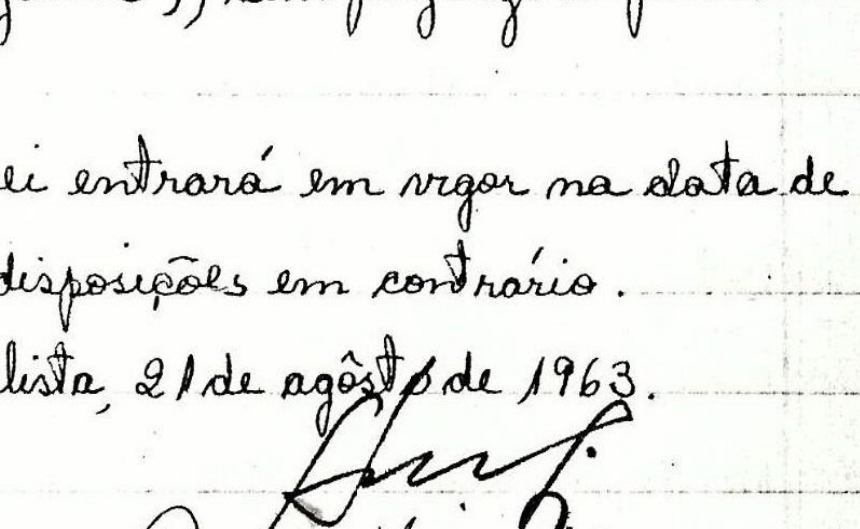 ei entrará em vigor na data de
disposições em contrário.
lista, 21 de agôsto de 1963.